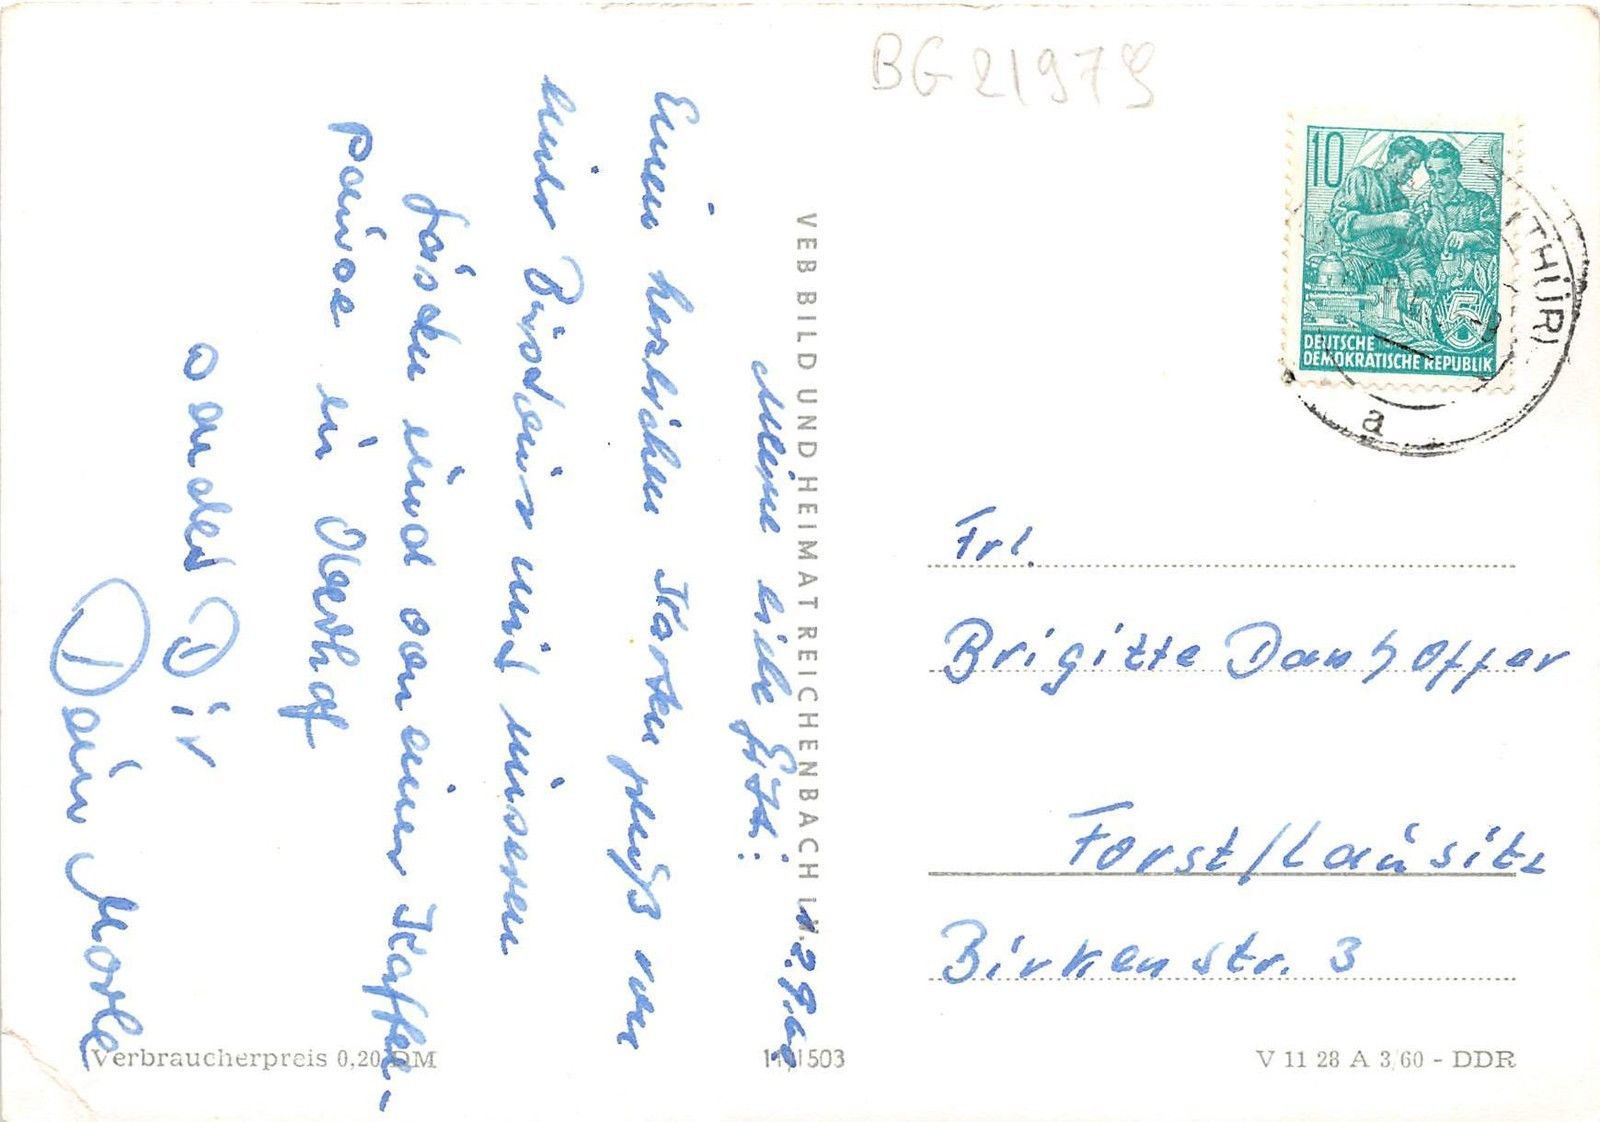 BG21979
10
DEUTSCHE
DEMOKRATISCHE REPUBLIK
(THÜR)
a
VEB BILD UND HEIMAT REICHENBACH i.V.
Meine liebe
Einen herzlichen Karten gruß von
und unseren
sind von einer Kaffee-
pause in Oberhof
sendet Dir
Dein
Frl.
Brigitte
Forst/Lausitz
Birkenstr. 3
Verbraucherpreis 0,20 DM
V 11 28 A 3/60 - DDR